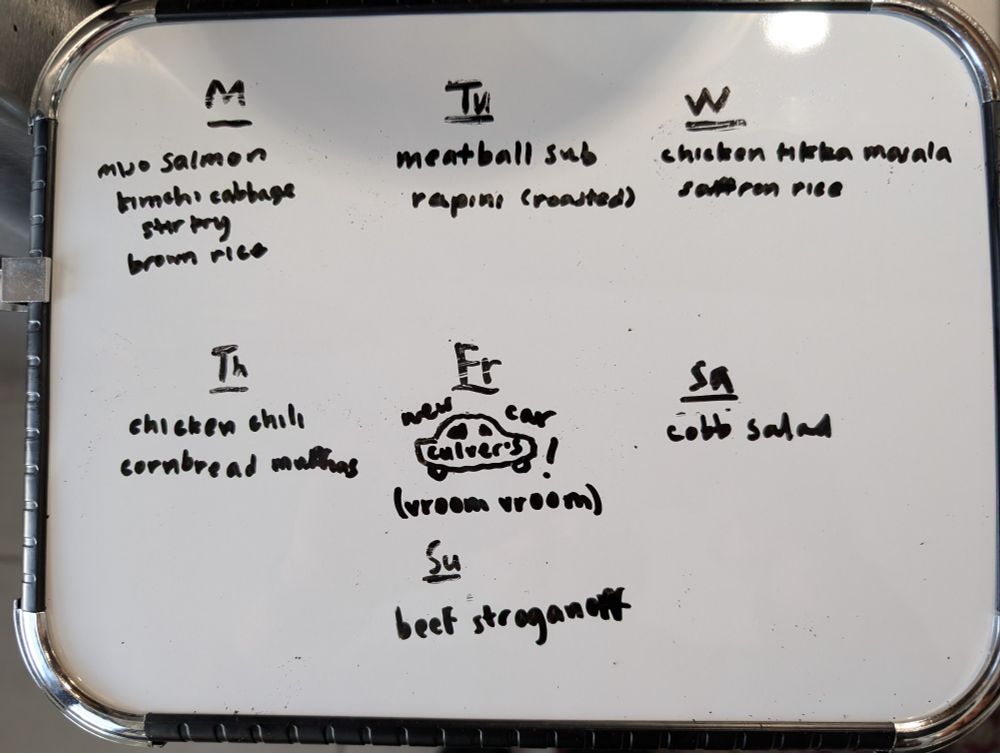 M
miso salmon
kimchi cabbage
stir fry
brown rice
Tu
meatball sub
rapini (roasted)
W
chicken tikka masala
saffron rice
Th
chicken chili
cornbread muffins
Fr
new car
culver's !
(vroom vroom)
Sa
cobb salad
Su
beef stroganoff